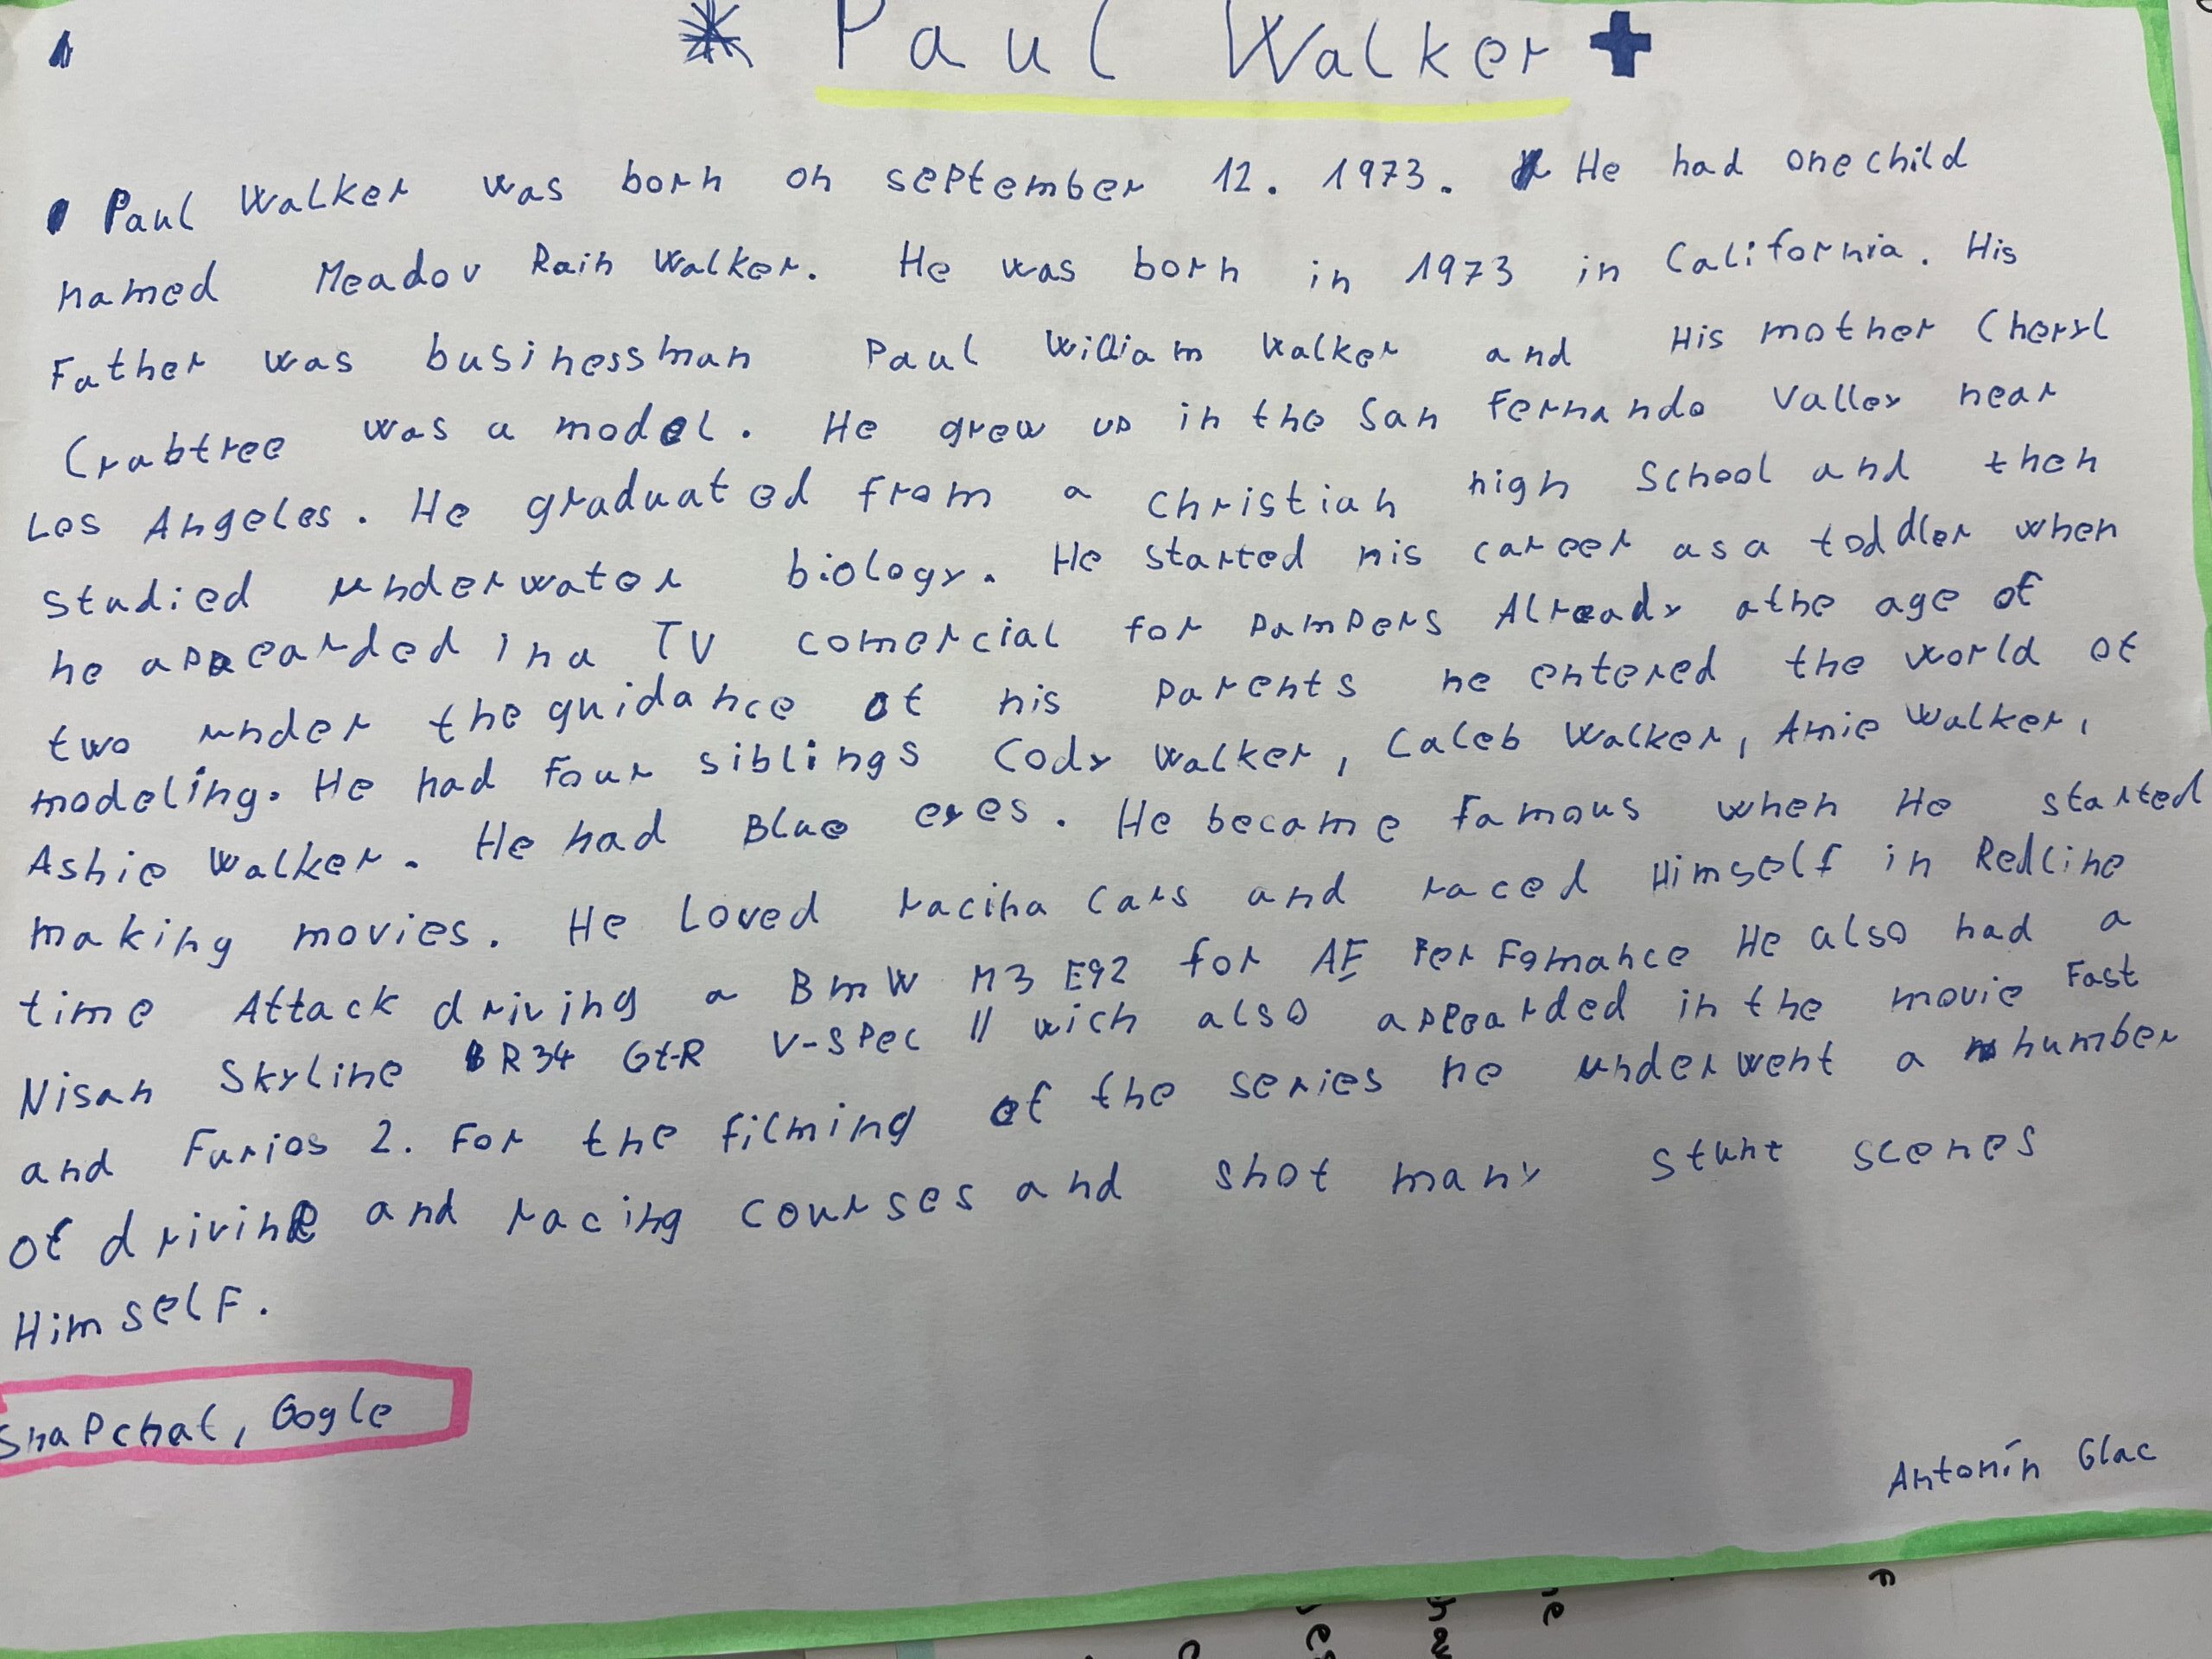 * Paul Walker +
Paul Walker was born on september 12. 1973. He had one child
named Meadov Rain Walker. He was born in 1973 in California. His
Father was businessman Paul William Walker and His mother Cheryl
Crabtree was a model. He grew up in the San Fernando Valley near
Los Angeles. He graduated from a christian high School and then
studied underwater biology. He started his career as a toddler when
he appearded in a TV comercial for pampers Already athe age of
two under the guidance of his parents he entered the world of
modeling. He had four siblings Cody Walker, Caleb Walker, Amie Walker,
Ashie Walker. He had Blue eyes. He became famous when He started
making movies. He loved racina cars and raced Himself in Redline
time Attack driving a BmW M3 E92 for AE PerFomance He also had a
Nisan Skyline R34 Gt-R V-SPec II wich also appearded in the movie Fast
and Furios 2. For the filming of the series he underwent a number
of driving and racing courses and shot many stunt scenes
Himself.
SnaPchat, Gogle
Antonín Glac